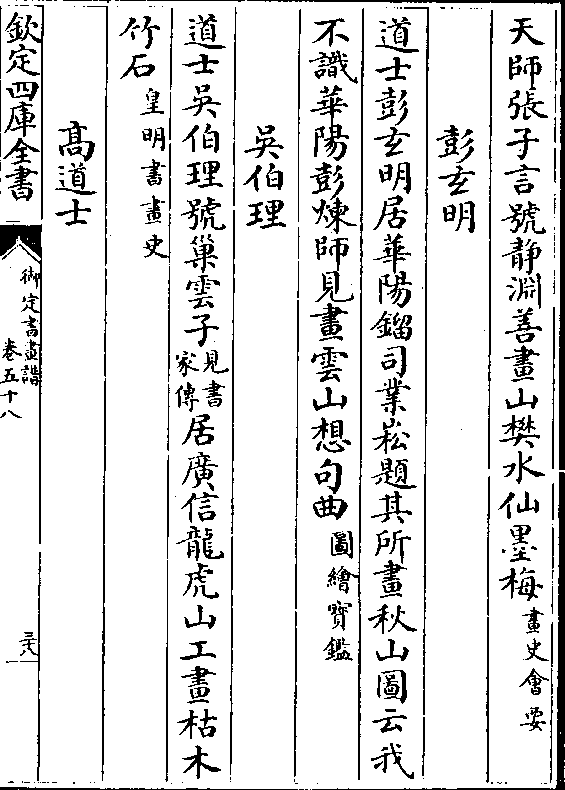 天師張子言號靜淵善畫山樊水仙墨梅畫史會要
彭玄明
道士彭玄明居華陽鎦司業崧題其所畫秋山圖云我
不識華陽彭煉師見畫雲山想句曲圖繪寶鑑
吳伯理
道士吳伯理號巢雲子見書家傳居廣信龍虎山工畫枯木
竹石皇明書畫史
高道士
欽定四庫全書
御定書畫譜
卷五十八
三六